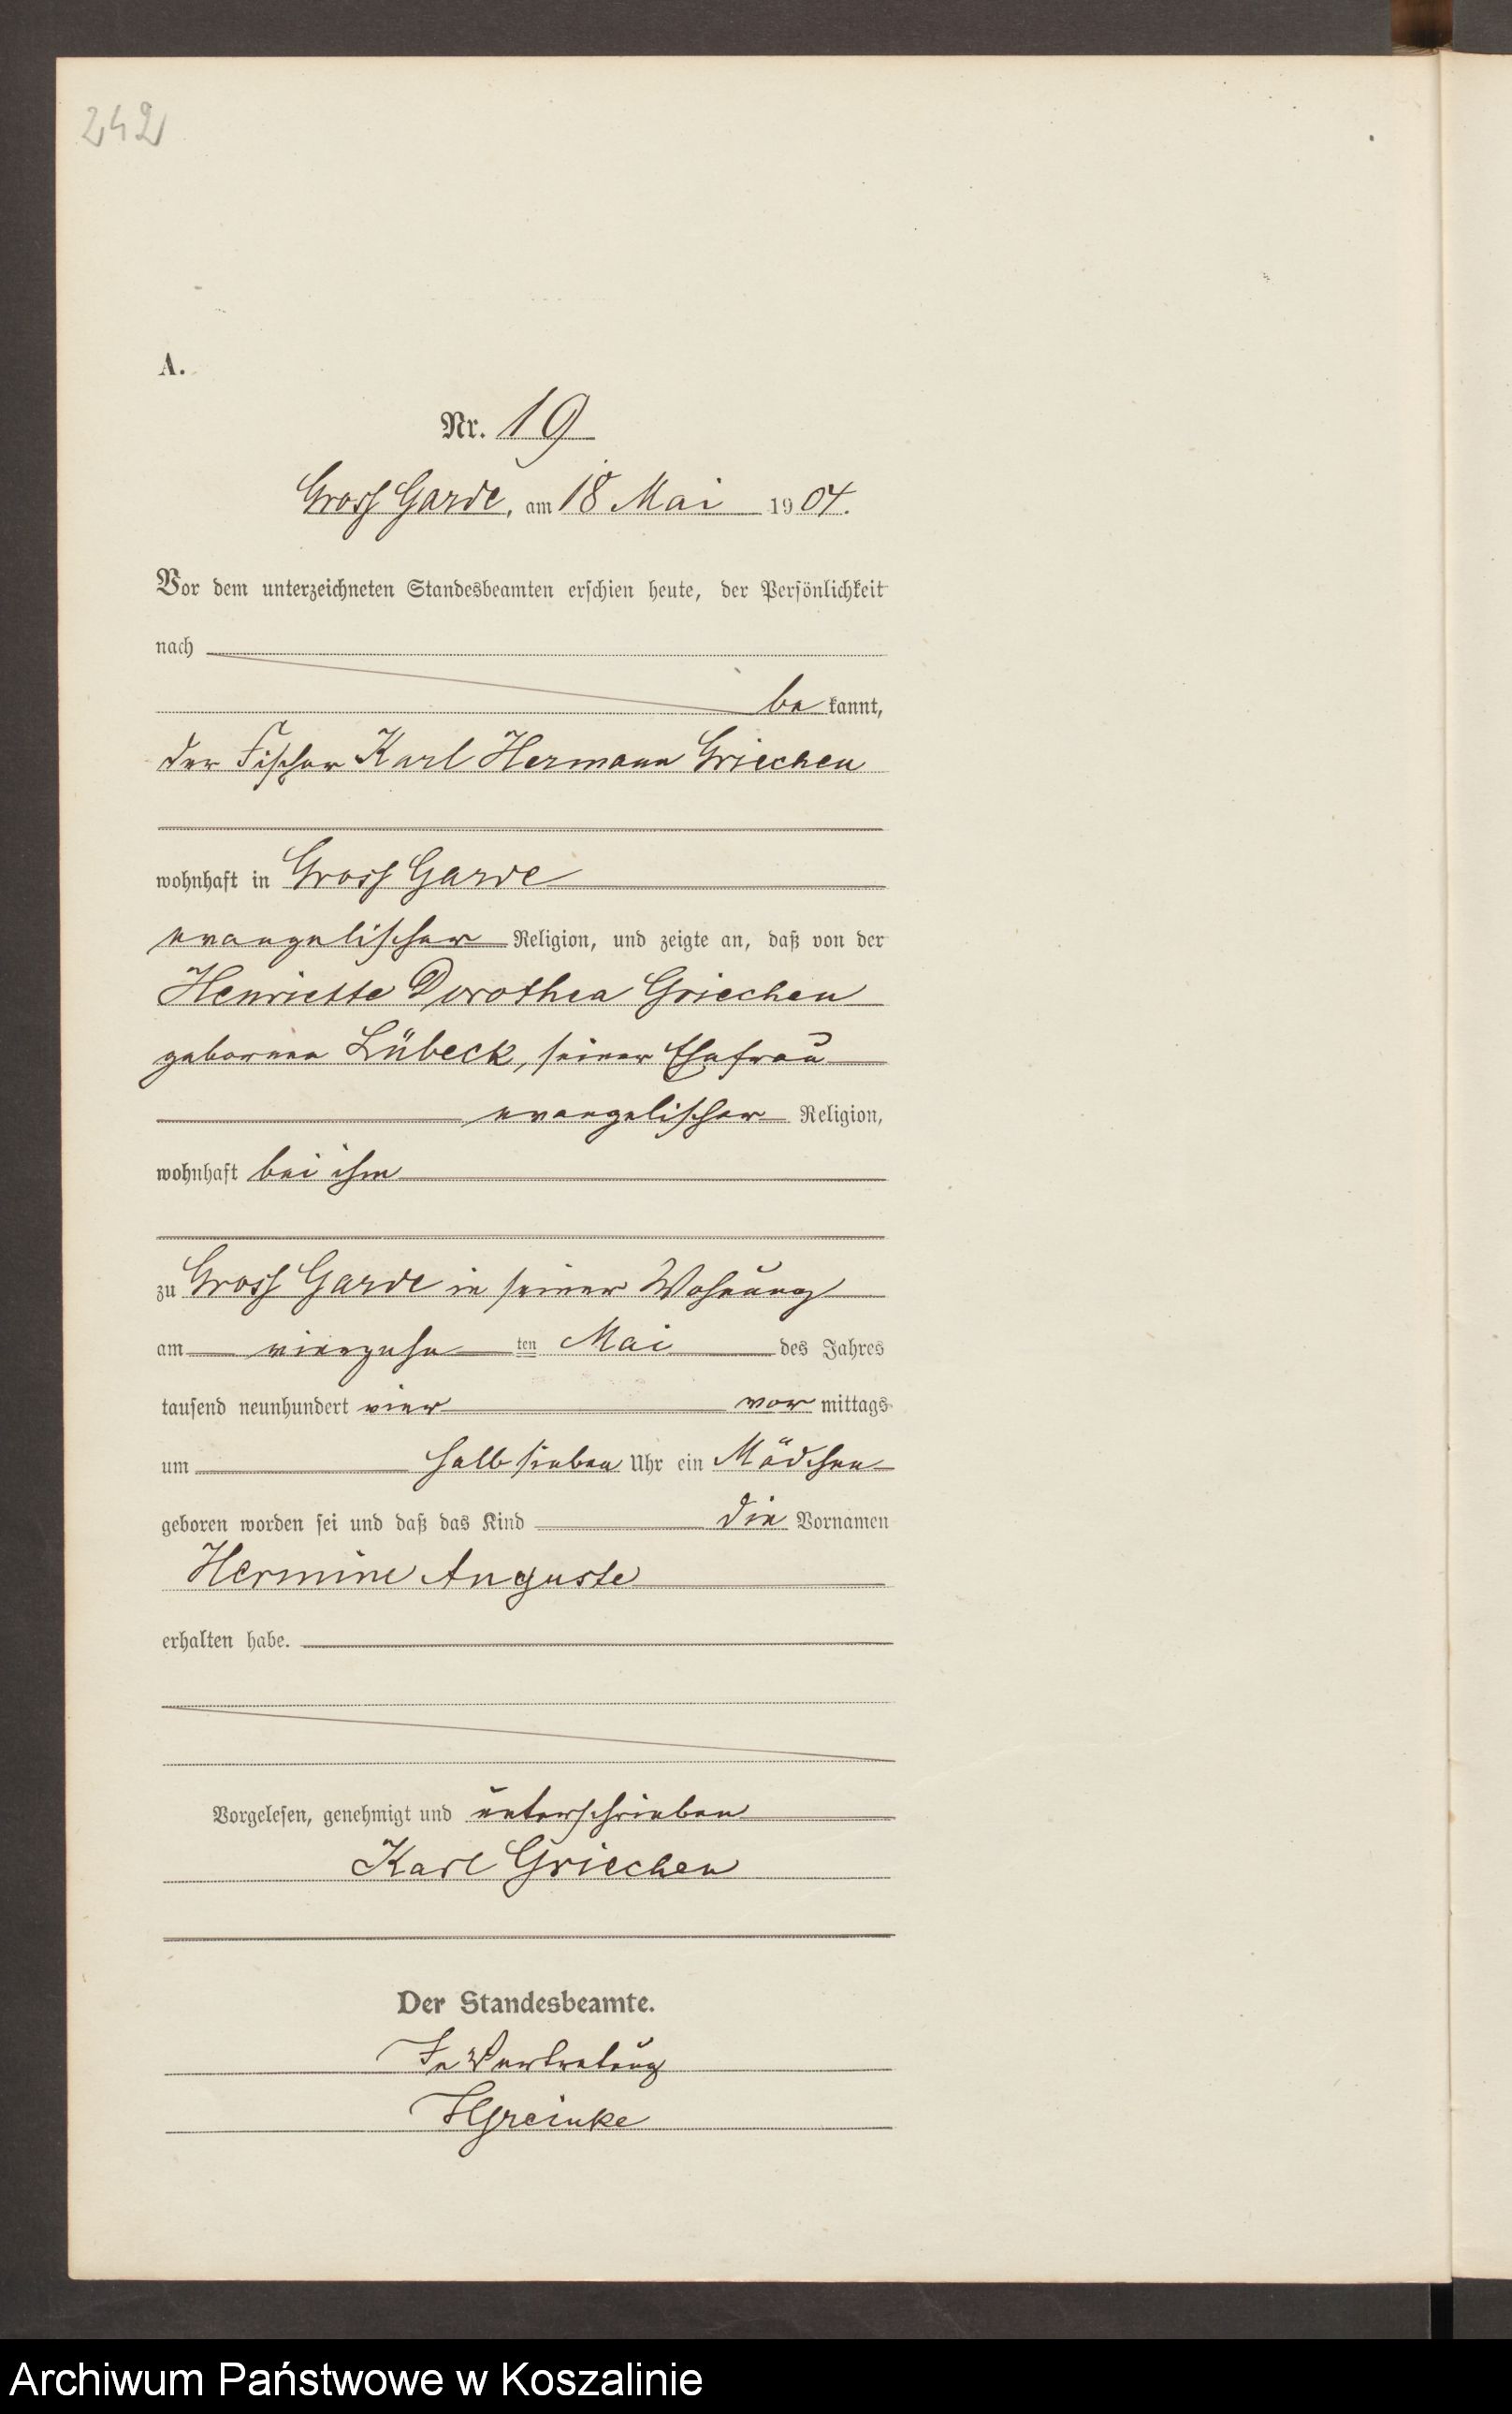 242
A.
Nr. 19
Gross Garde, am 18 Mai 1904.
Vor dem unterzeichneten Standesbeamten erschien heute, der Persönlichkeit
nach
be kannt,
der Fischer Karl Hermann Griechen
wohnhaft in Gross Garde
evangelischer Religion, und zeigte an, daß von der
Henriette Dorothea Griechen
geborenen Lübeck, seiner Ehefrau
evangelischer Religion,
wohnhaft bei ihm
zu Gross Garde in seiner Wohnung
am vierzehn ten Mai des Jahres
tausend neunhundert vier vor mittags
um halb sieben Uhr ein Mädchen
geboren worden sei und daß das Kind die Vornamen
Hermine Auguste
erhalten habe.
Vorgelesen, genehmigt und unterschrieben
Karl Griechen
Der Standesbeamte.
In Vertretung
HGreinke
Archiwum Państwowe w Koszalinie